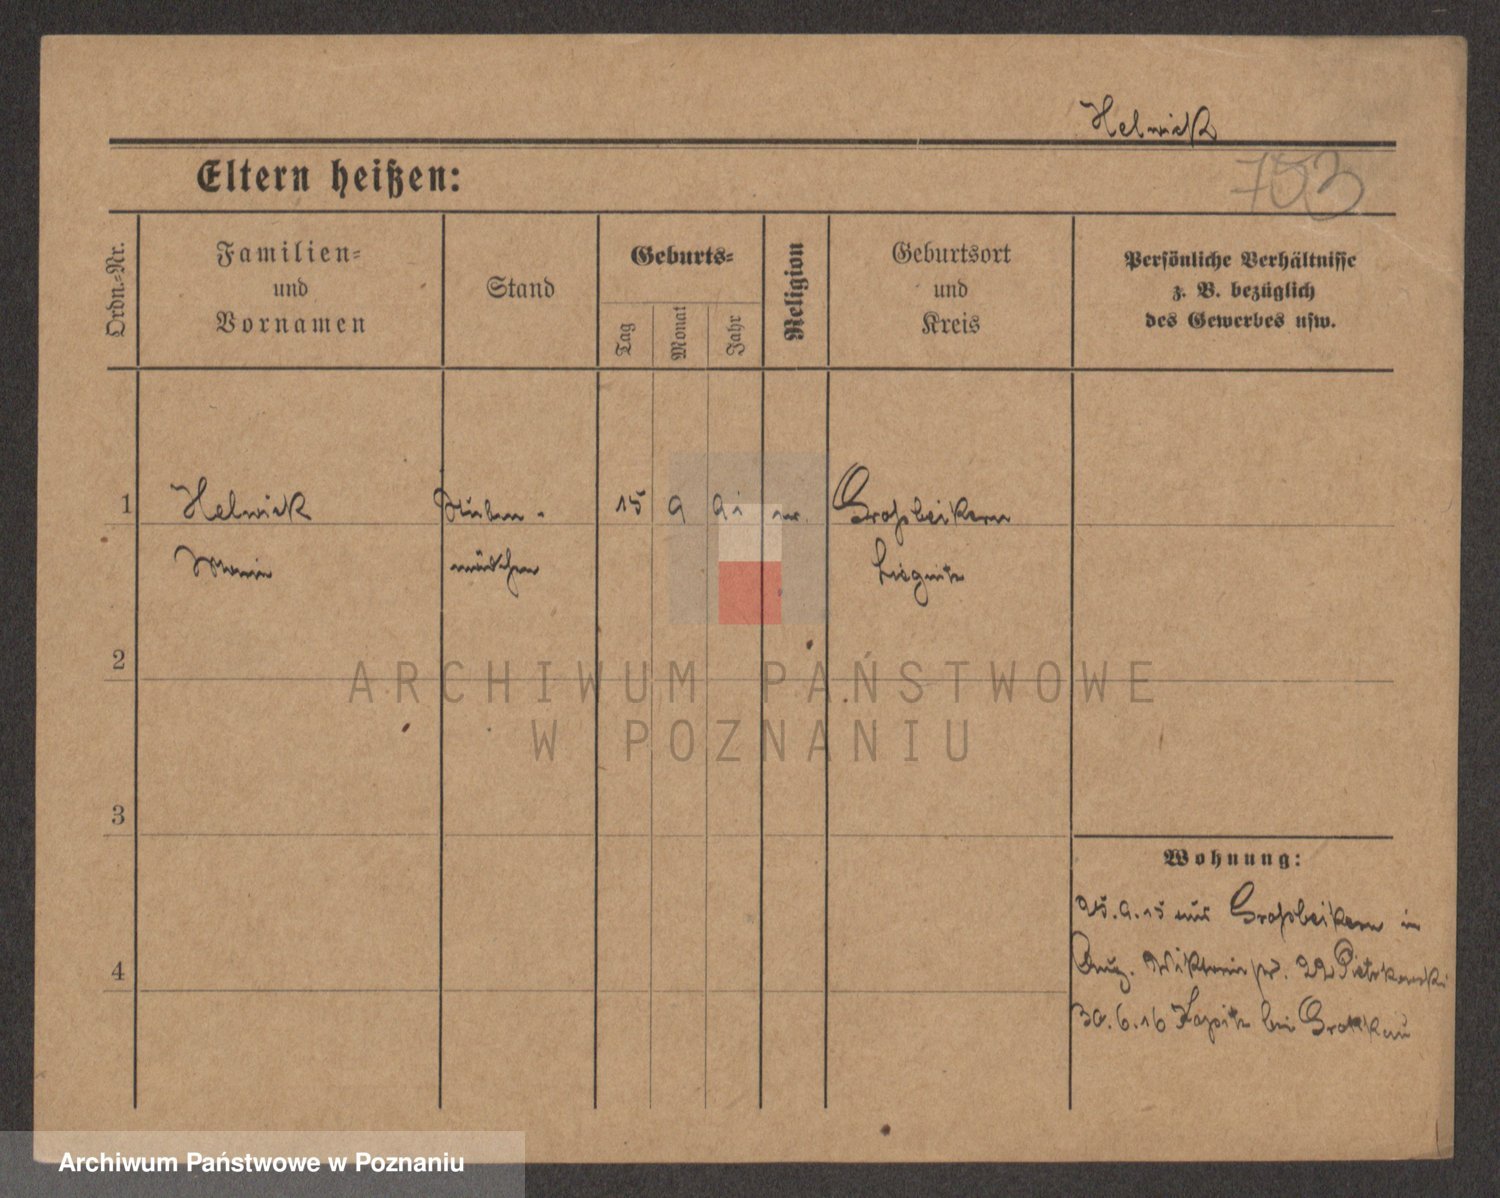 Helwick
753
Eltern heißen:
Ordn.-Nr.
Familien-
und
Vornamen
Stand
Geburts-
Tag
Monat
Jahr
Religion
Geburtsort
und
Kreis
Persönliche Verhältnisse
z. B. bezüglich
des Gewerbes usw.
1
Helwick Stuben- 15 9 91 ev. Grossbeckern
Marie mädchen Liegnitz
2
ARCHIWUM PAŃSTWOWE
W POZNANIU
3
Wohnung:
25.9.15 aus Grossbeckern in
Aug. Viktoria 22 Pietrkowski
4
30.6.16 bei Grottkau
Archiwum Państwowe w Poznaniu